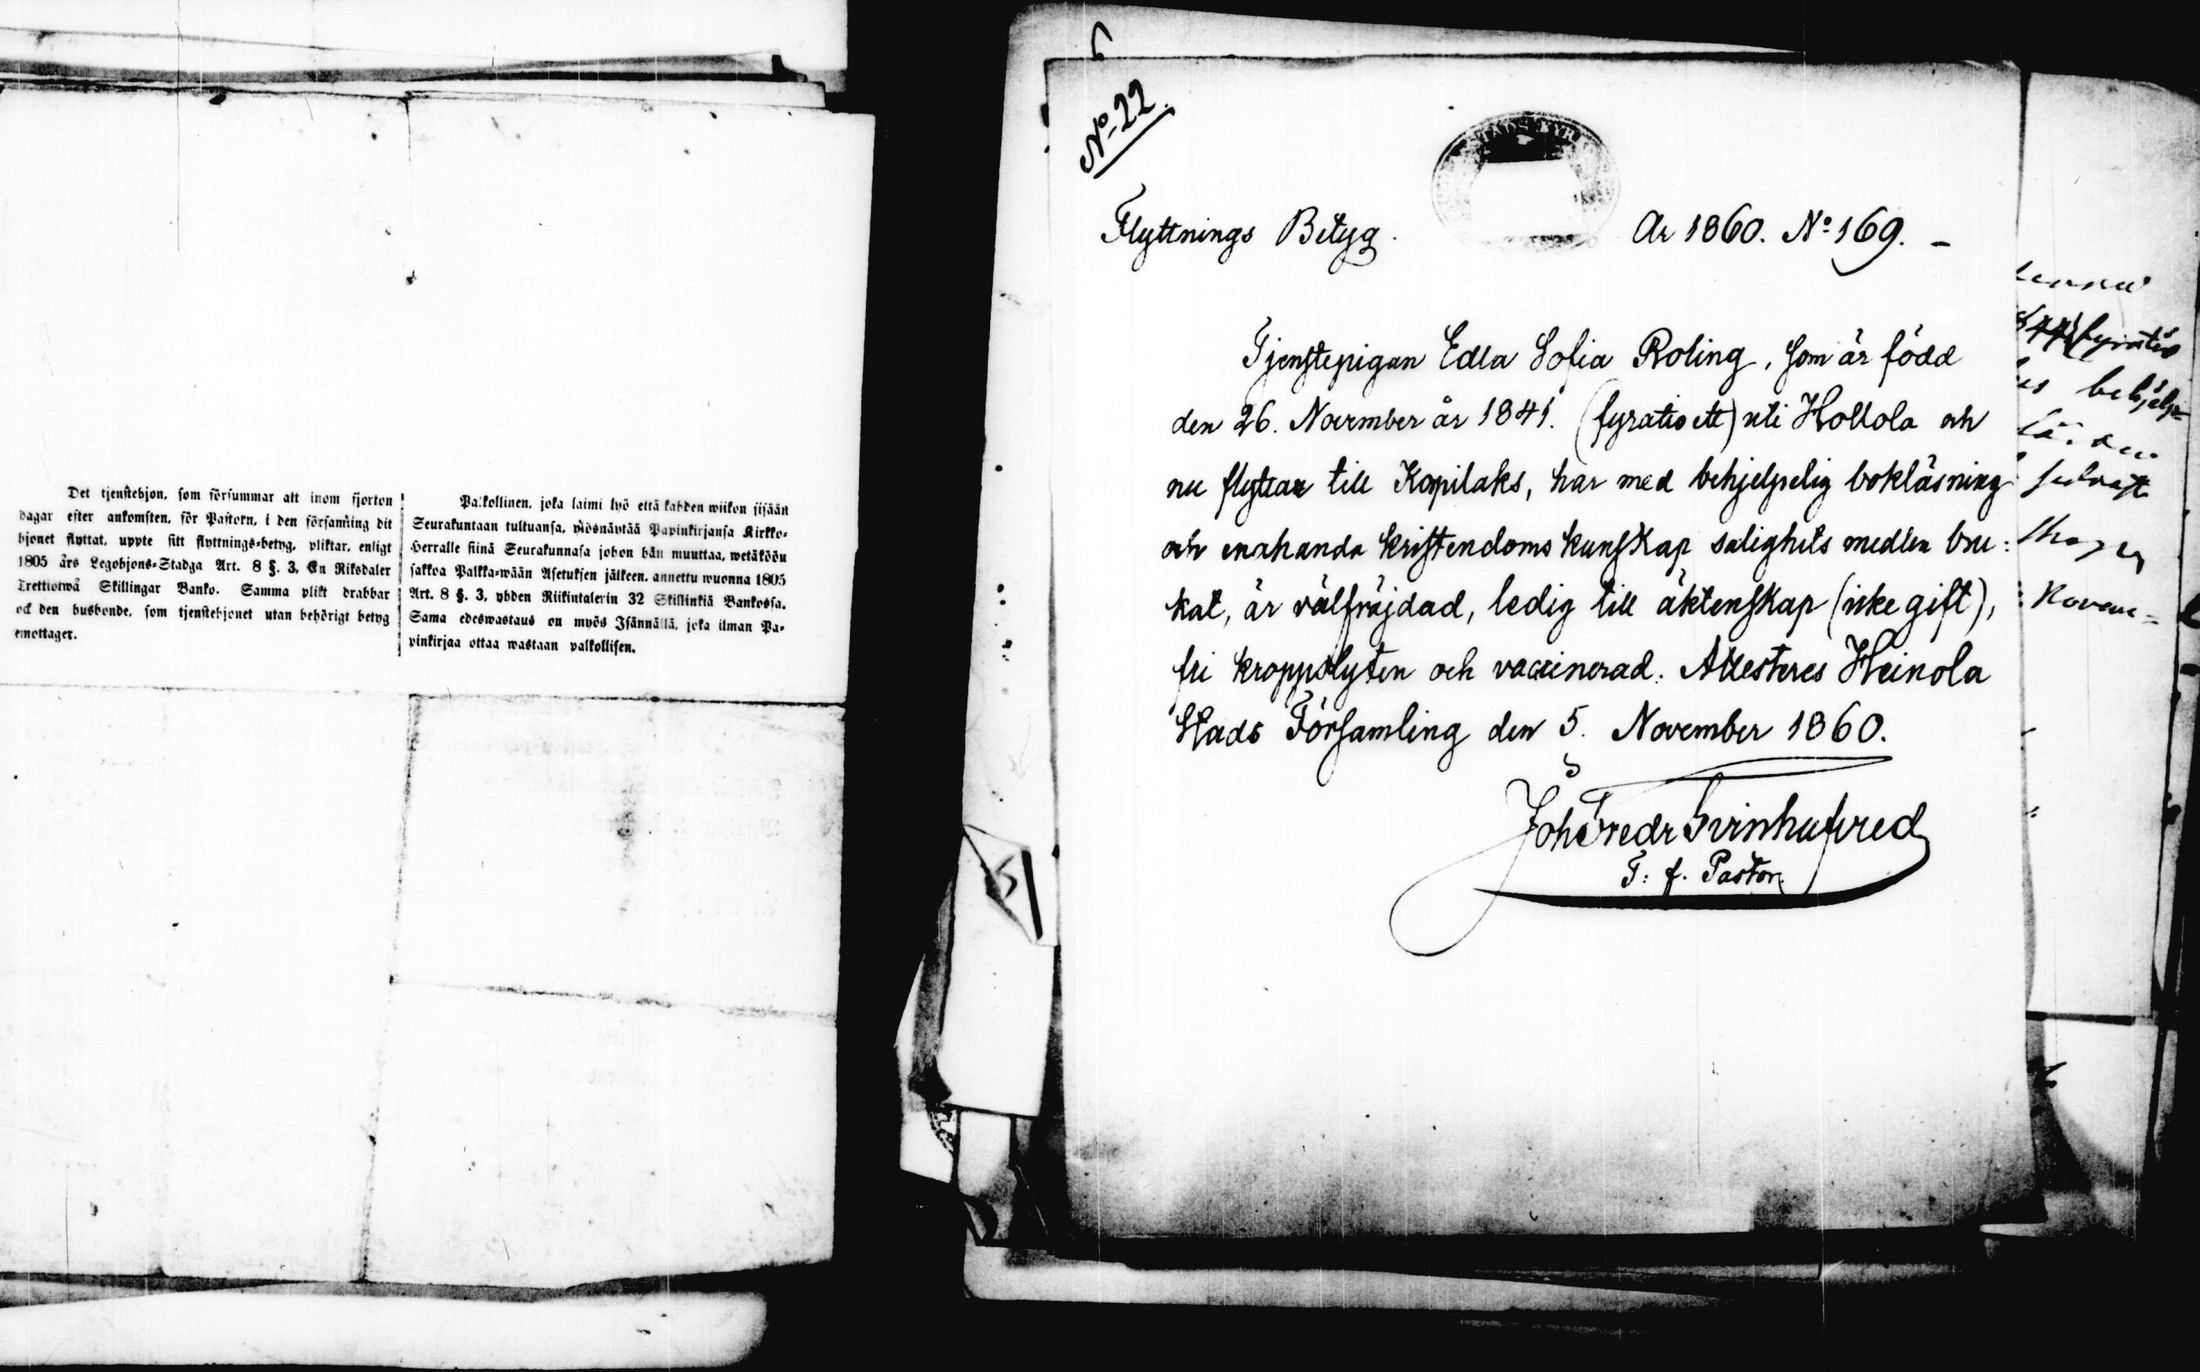 Det tjenstehjon, som försummar att inom fjorton
dagar efter ankomsten, för Pastorn, i den församling dit
hjonet flyttat, uppte sitt flyttnings-betyg, pliktar, enligt
1805 års Legohjons-Stadga Art. 8 §. 3, En Riksdaler
Trettiotwå Skillingar Banko. Samma plikt drabbar
ock den husbonde, som tjenstehjonet utan behörigt betyg
emottager.
Palkollinen, joka laimi lyö että kahden wiikon sisään
Seurakuntaan tultuansa, myösnäyttää Papinkirjansa Kirkko-
Herralle siinä Seurakunnasa johon hän muuttaa, wetäköön
sakkoa Palkka-wään Asetuksen jälkeen, annettu wuonna 1805
Art. 8 §. 3, yhden Riikintalerin 32 Skillinkiä Bankossa.
Sama edeswastaus on myös Isännällä, joka ilman Pa-
pinkirjaa ottaa wastaan palkollisen.
No 22.
Flyttnings Betyg. År 1860. No 169. –
Tjenstepigan Edla Sofia Roling, som är född
den 26. November år 1841. (fyratio ett) uti Hollola och
nu flyttar till Kopilaks, har med behjelpelig bokläsning
och enahanda kristendoms kunskap salighets medlen bru:
kat, är välfräjdad, ledig till äktenskap (icke gift),
fri kroppslyten och vaccinerad. Attesteres Heinola
Stads Församling den 5. November 1860.
Joh Fredr Svinhufvud
T: f. Pastor.
behjelp-
Novem=